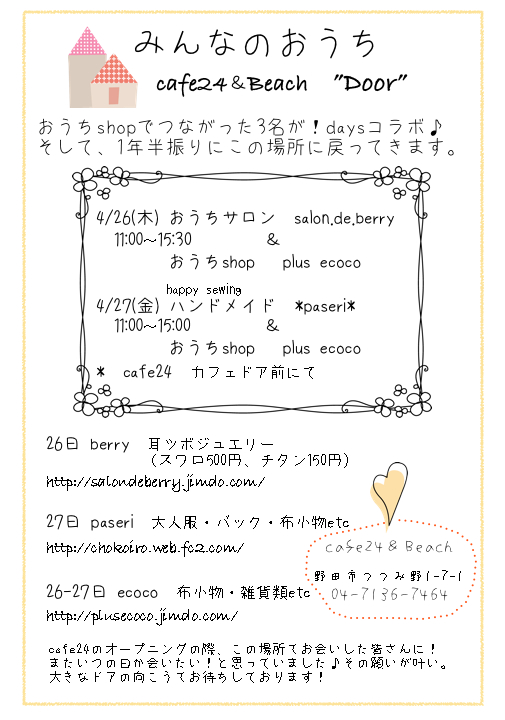 みんなのおうち
cafe24＆Beach "Door"
おうちshopでつながった3名が！daysコラボ♪
そして、1年半振りにこの場所に戻ってきます。
4/26(木) おうちサロン salon.de.berry
11:00～15:30 ＆
おうちshop plus ecoco
happy sewing
4/27(金) ハンドメイド *paseri*
11:00～15:00 ＆
おうちshop plus ecoco
* cafe24 カフェドア前にて
26日 berry 耳ツボジュエリー
(スワロ500円、チタン150円)
http://salondeberry.jimdo.com/
27日 paseri 大人服・バック・布小物etc
http://chokoiro.web.fc2.com/
cafe24＆Beach
野田市つつみ野1-7-1
04-7136-7464
26-27日 ecoco 布小物・雑貨類etc
http://plusecoco.jimdo.com/
cafe24のオープニングの際、この場所でお会いした皆さんに！
またいつの日か会いたい！と思っていました♪その願いが叶い。
大きなドアの向こうでお待ちしております！